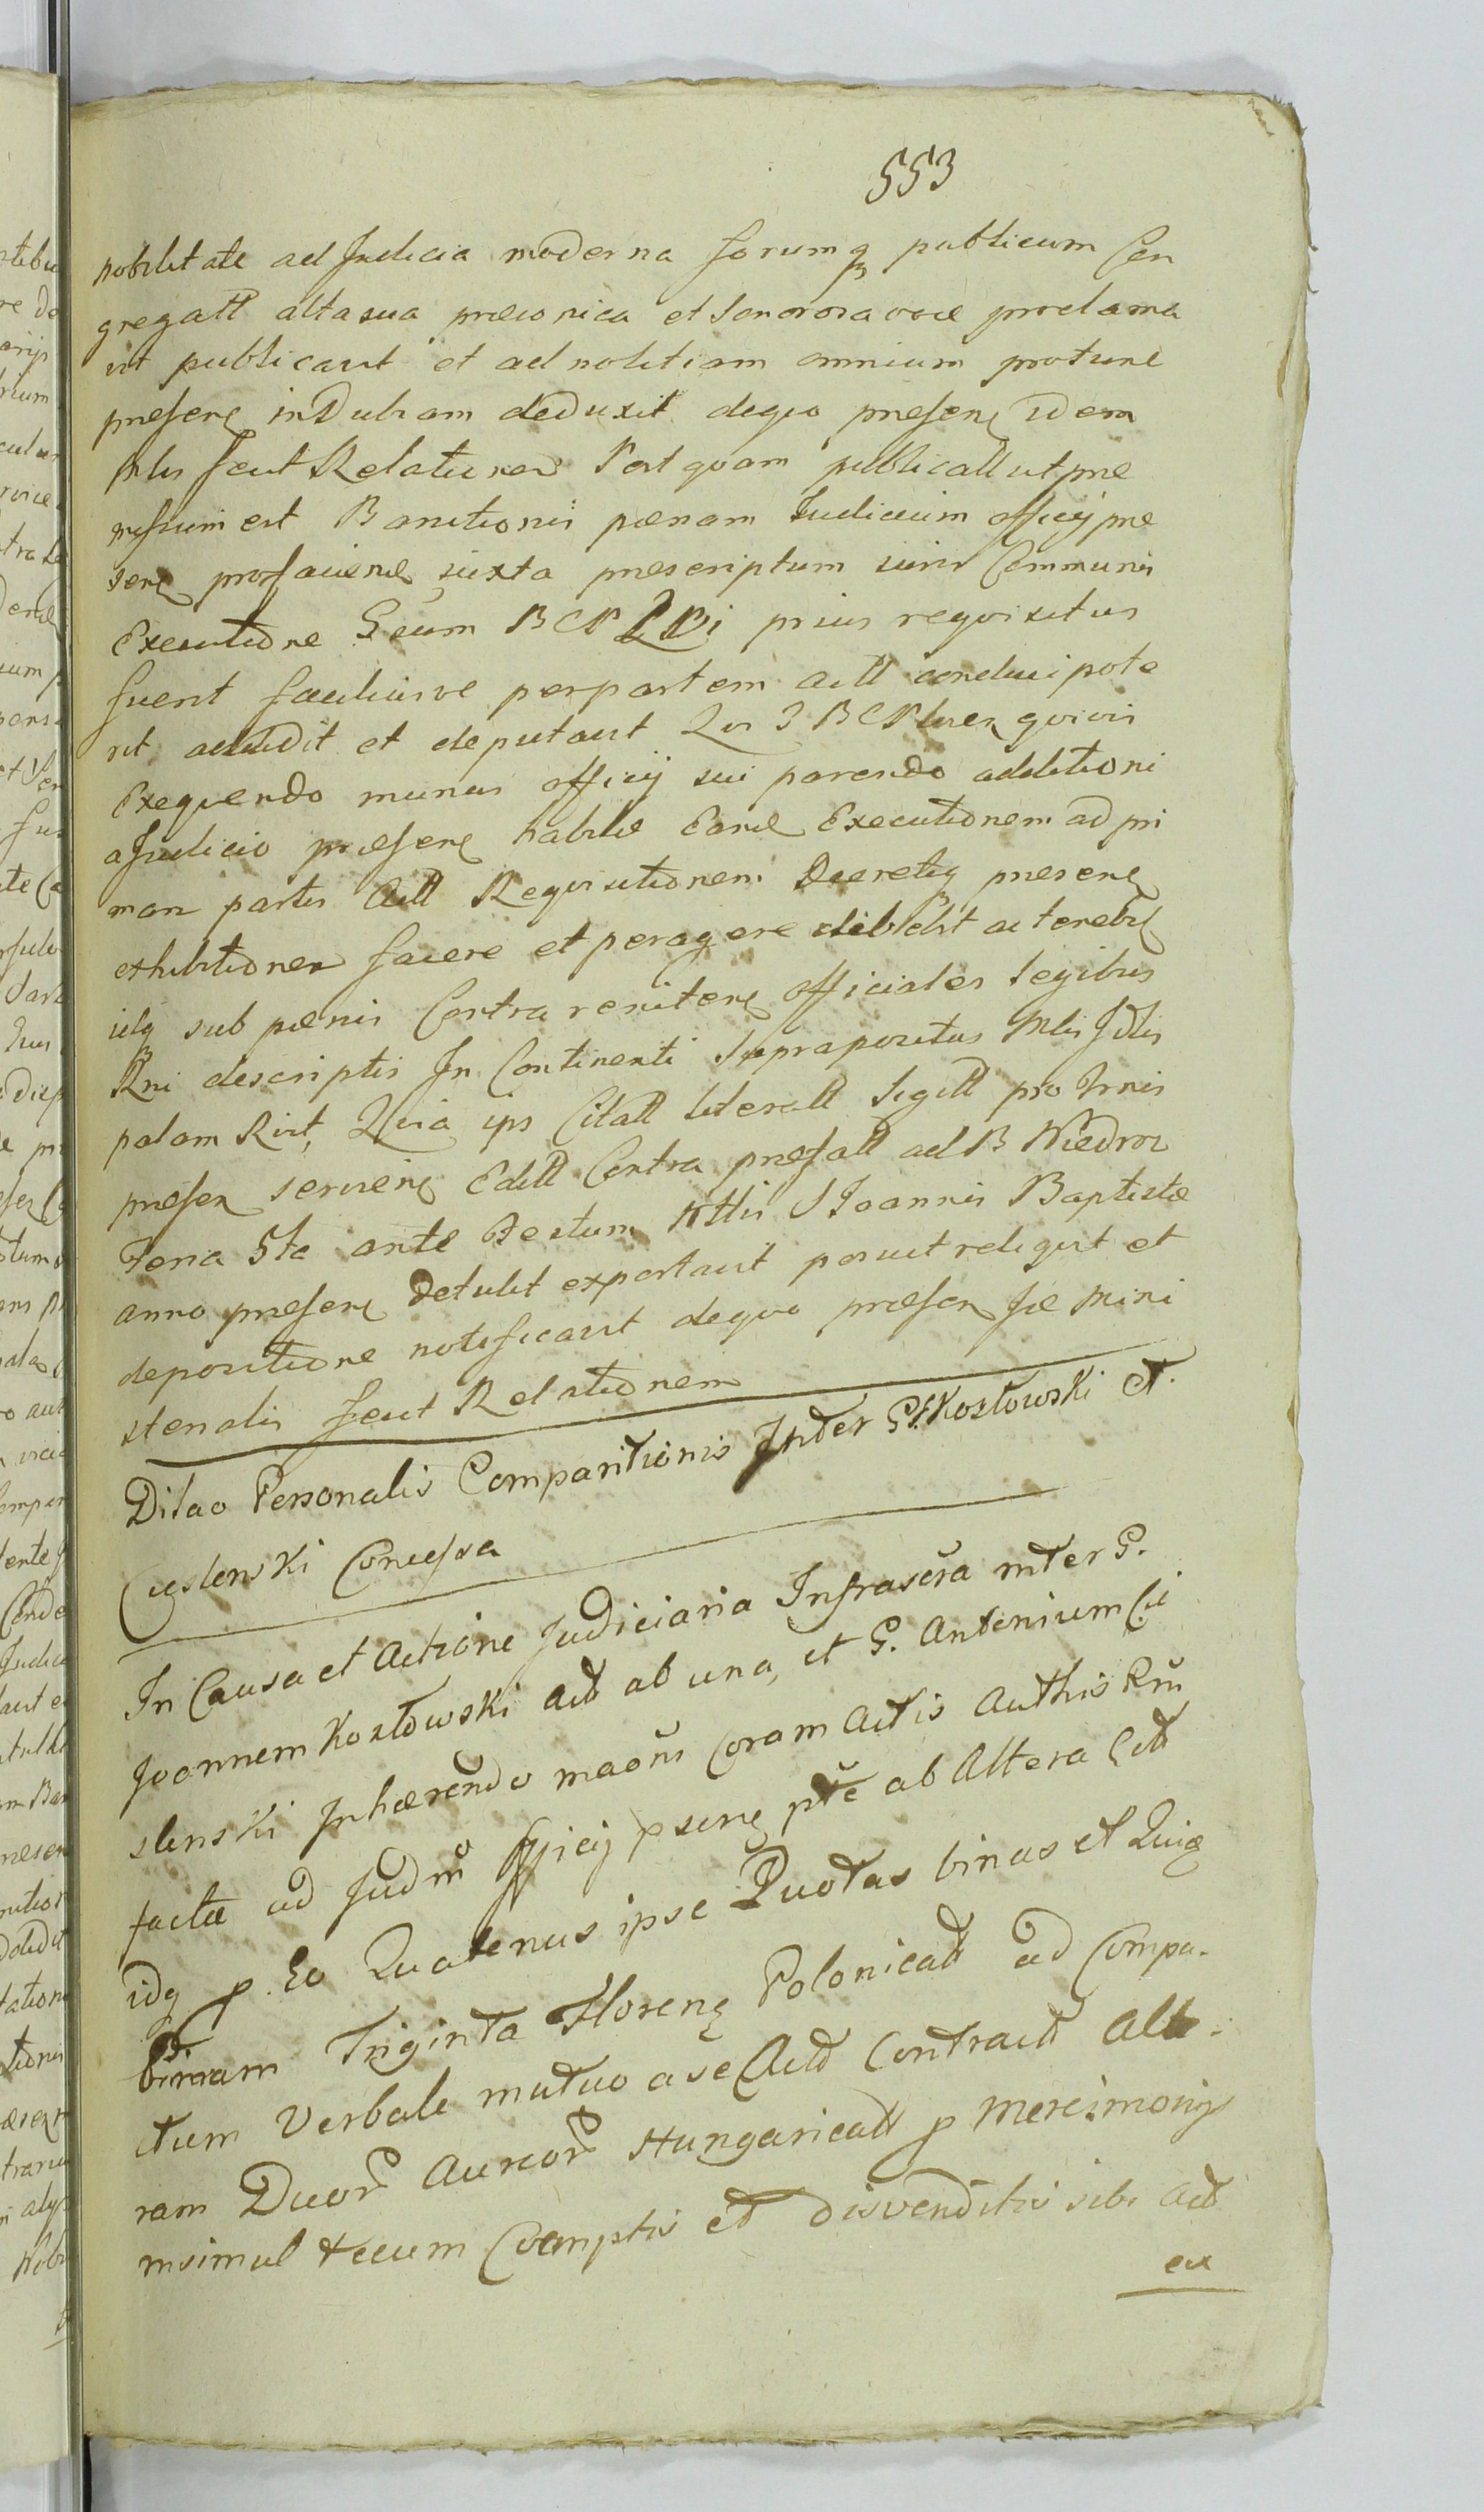 553
nobilitate ad Judicia moderna forumq publicum Con
gregatt alta sua præconica et sonorosa voce proclama
vit publicavit et ad notitiam omnium protunc
præsenȩ indubiam deduxit deqvo præsenȩ idem
Mlis fecit Relationem Post qvam publicatt ut præ
missum est Banitionis pænam Judicium officij præ
senȩ pro faciend juxta præscriptum juris Communis
Executione Gsum BCP prius reqvisitus
fuerit faciliusve per partem Actt conduci pote
rit addidit et deputavit Qui G BCP qvivis
Exeqvendo munus officij sui parendo additioni
a Judicio præsenȩ habitæ Eand Executionem ad pri
mam partis Actt Reqvisitionem Decretiq præsenȩ
exhibitionem facere et peragere debebit ac tenebit
idq sub pænis Contra renitenȩ officiales legibus
Rni descriptis In Continenti Supra positus Mlis Jdlis
palam Rvit, Quia ips Citatt literatt Sigitt pro Trnis
præsen servienȩ Editt Contra præfatt ad B
Feria 5ta ante Festum Ntlis S Joannis Baptistæ
anno præsenȩ detulit exportavit posuit reliqvit et
depositione notificavit deqvo præsen se Mini
sterialis fecit Relationem
Ditao Personalis Comparitionis Inter G. Kozłowski et
Cieslenski Concessa
In Causa et Actione Judiciaria Infrascra inter G.
Joannem Kozłowski Act ab una, et G. Antonium Cie
slenski Inhærendo Coram Actis Authis Rni
factæ ad Judm Officij psenȩ pte ab Altera Citt
idq p Eo Quatenus ipse Quotas binas et Quiȩ
Triginta Florenȩ Polonicatt ad Compa-
Verbale mutuo a se Actt Contractt Alte-
ram Duor Aureor Hungaricatt p Mercimonijs
insimul tecum Coemptis et disvenditis sibi Act
ex